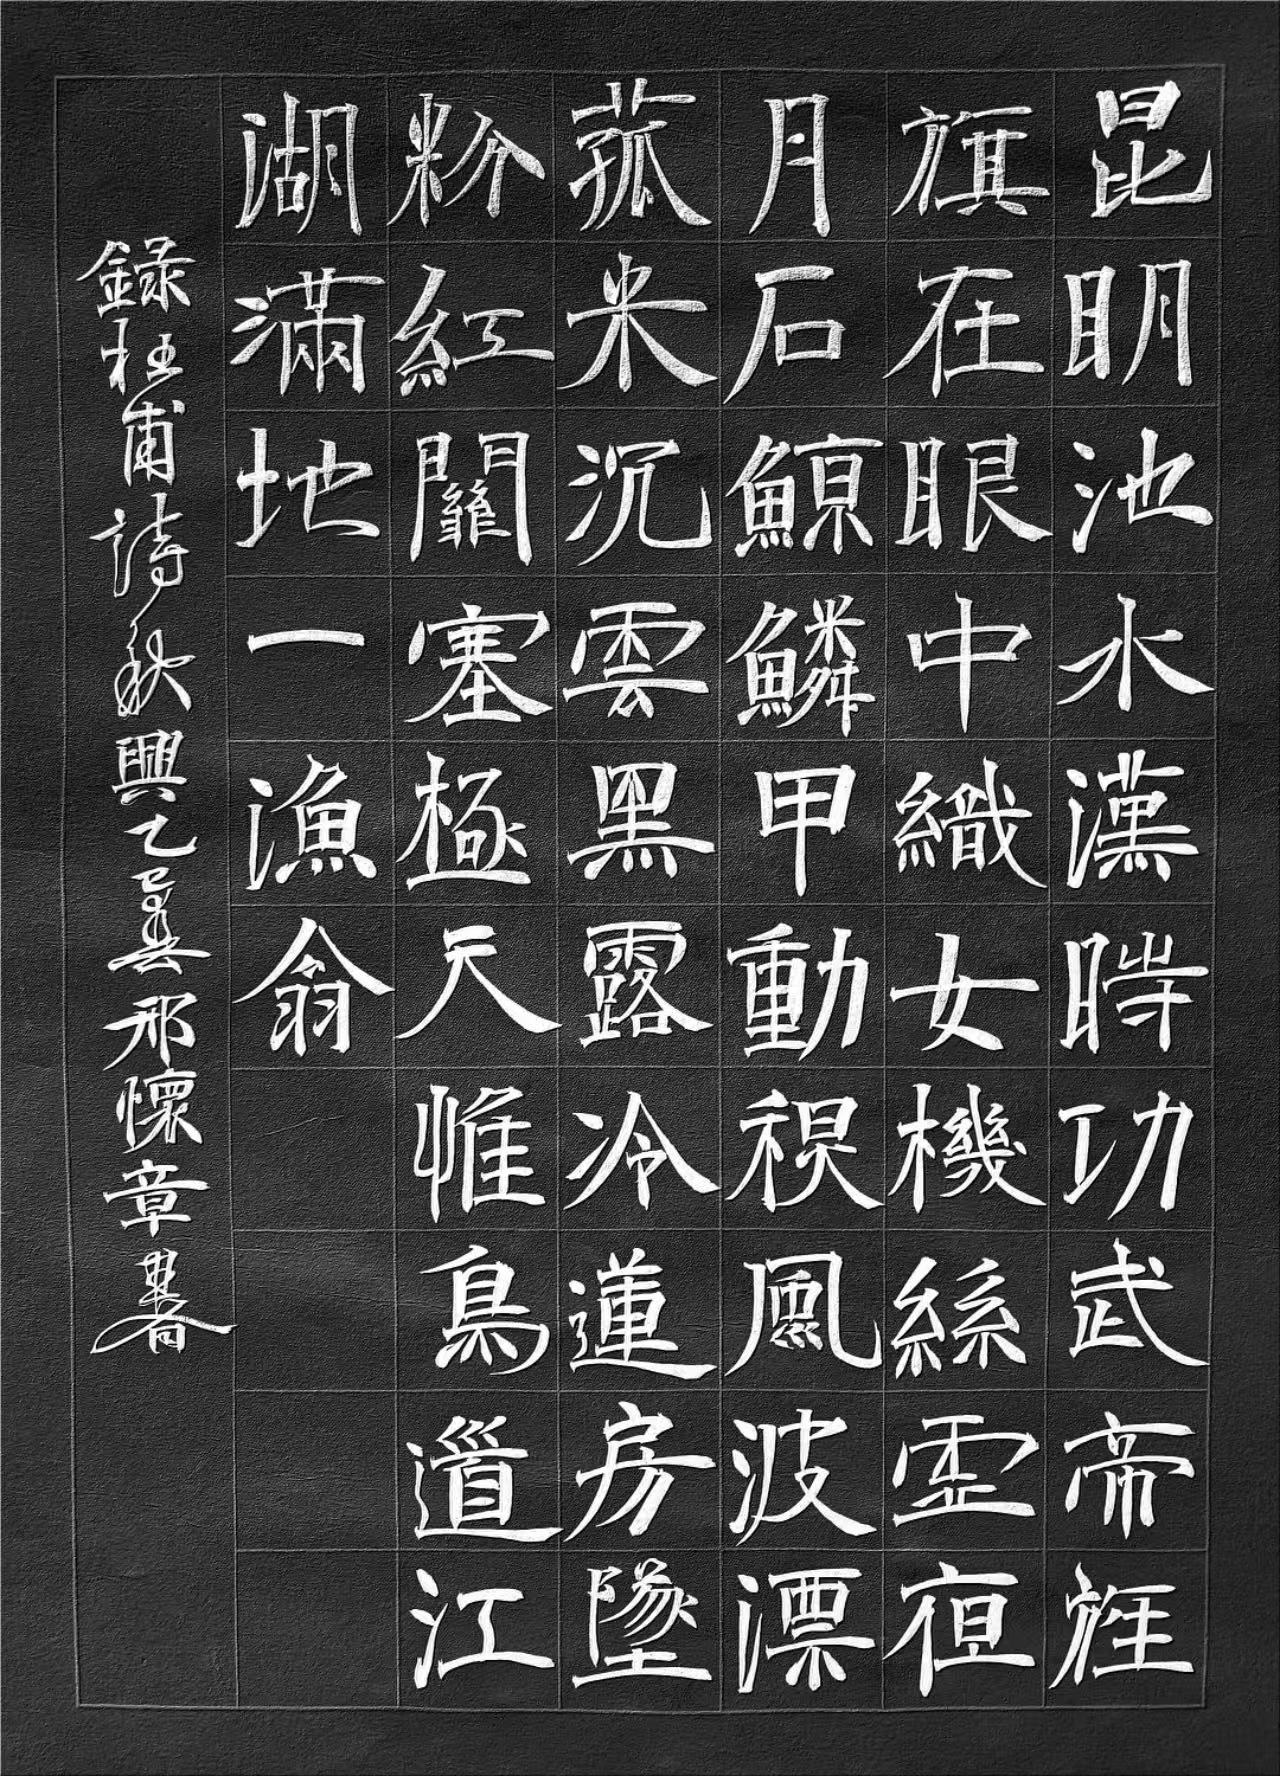 昆明池水漢時功武帝旌
旗在眼中織女機絲虛夜
月石鯨鱗甲動秋風波漂
菰米沉雲黑露冷蓮房墜
粉紅關塞極天惟鳥道江
湖滿地一漁翁
錄杜甫詩秋興乙巳夏邢懷章書